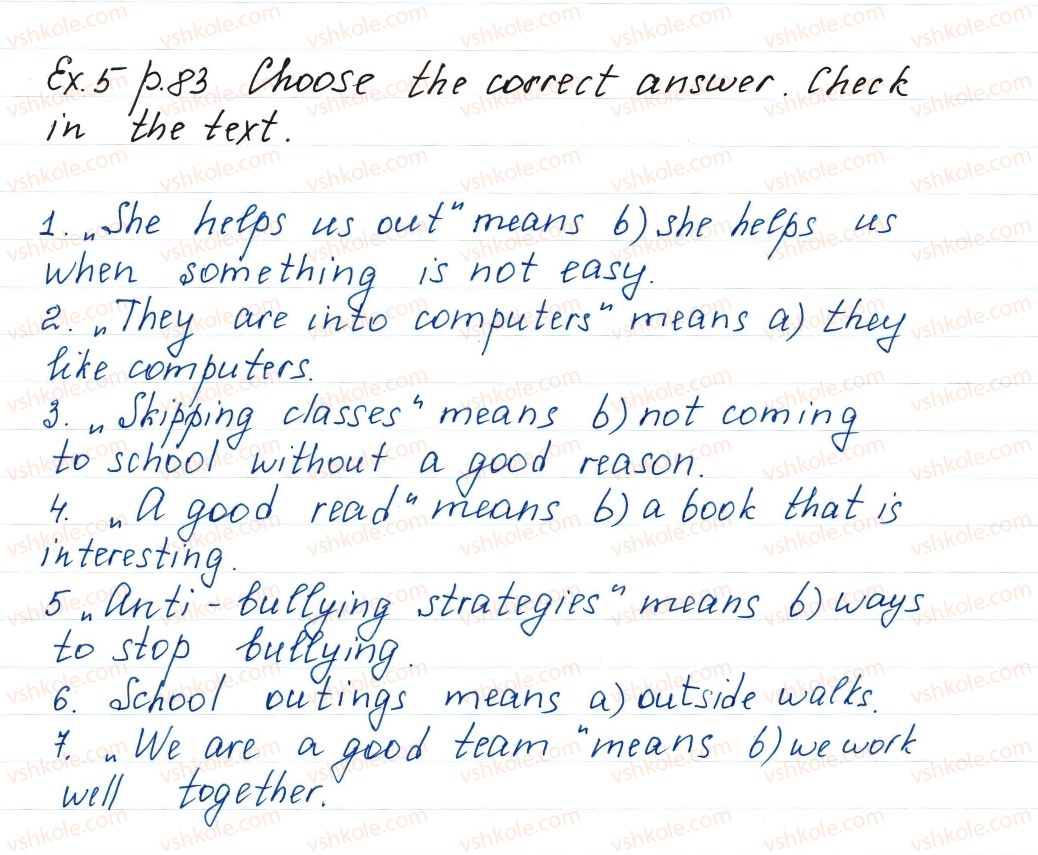 Ex. 5 p. 83 Choose the correct answer. Check
in the text.
1. „She helps us out" means b) she helps us
when something is not easy.
2. „They are into computers" means a) they
like computers.
3. „Skipping classes" means b) not coming
to school without a good reason.
4. „A good read" means b) a book that is
interesting.
5 „Anti-bullying strategies" means b) ways
to stop bullying.
6. School outings means a) outside walks.
7. „We are a good team" means b) we work
well together.
vshkole.com